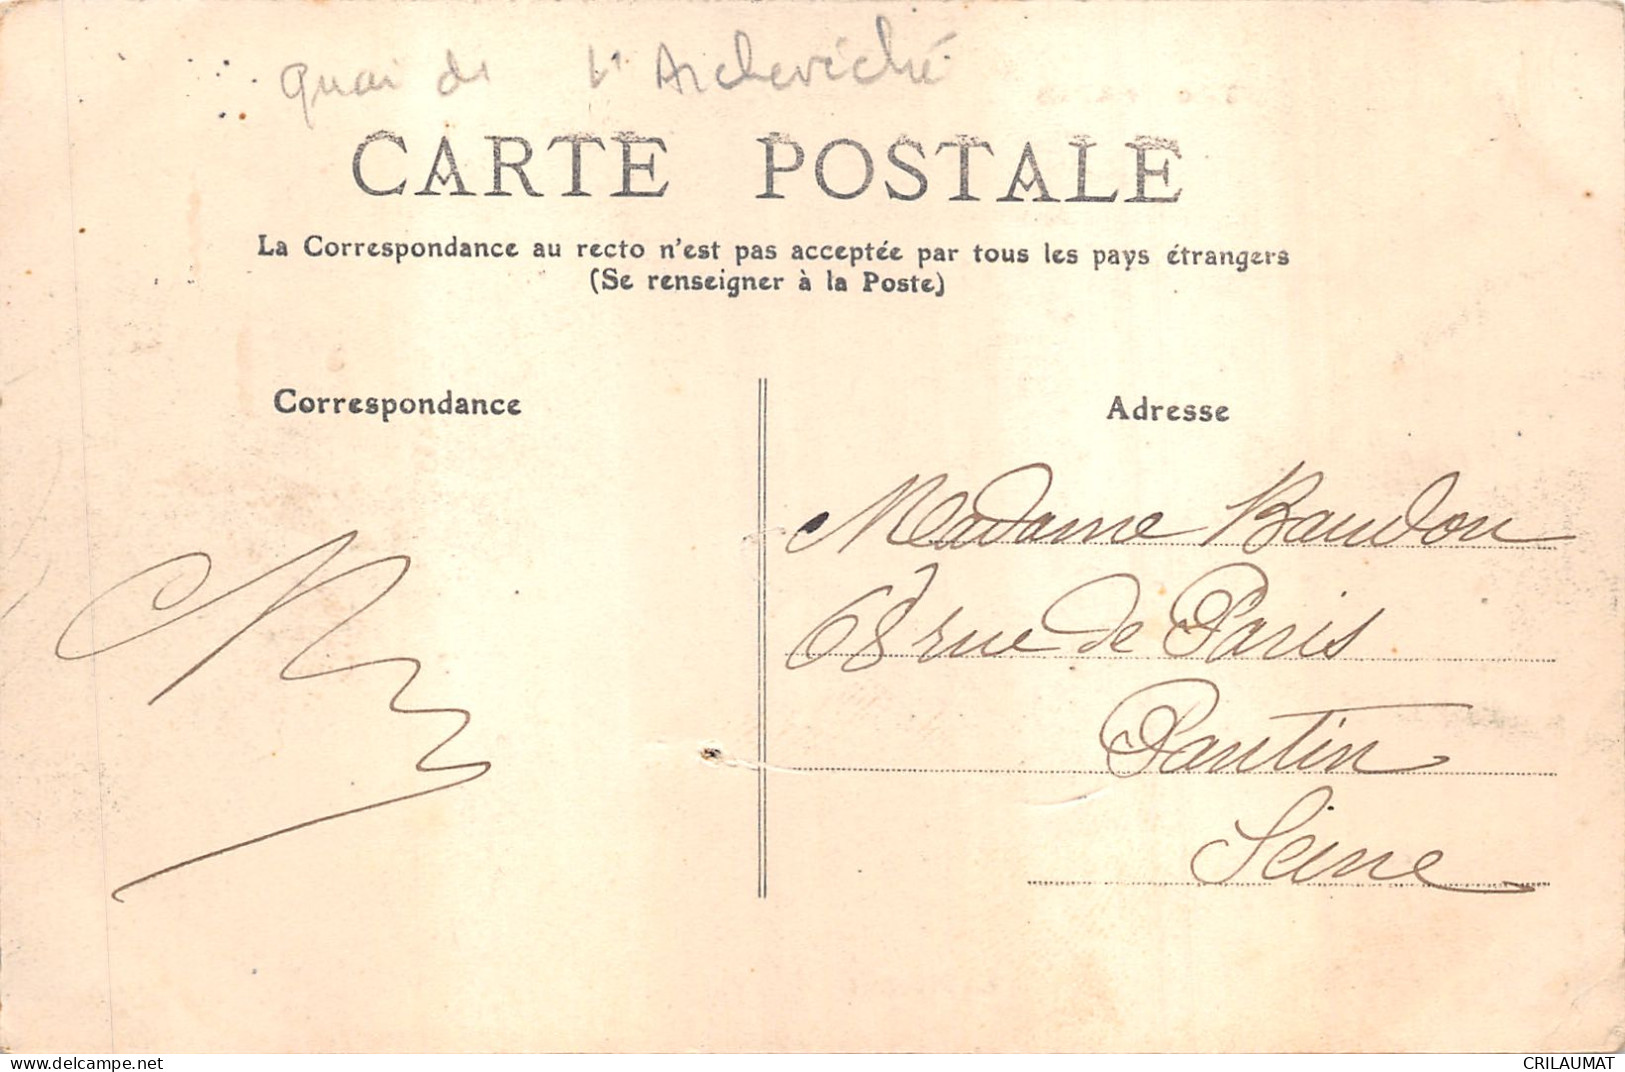 Quai de l'Archevêché
CARTE POSTALE
La Correspondance au recto n'est pas acceptée par tous les pays étrangers
(Se renseigner à la Poste)
Correspondance
Adresse
Madame Baudon
68 rue de Paris
Pantin
Seine
delcampe.net
CRILAUMAT